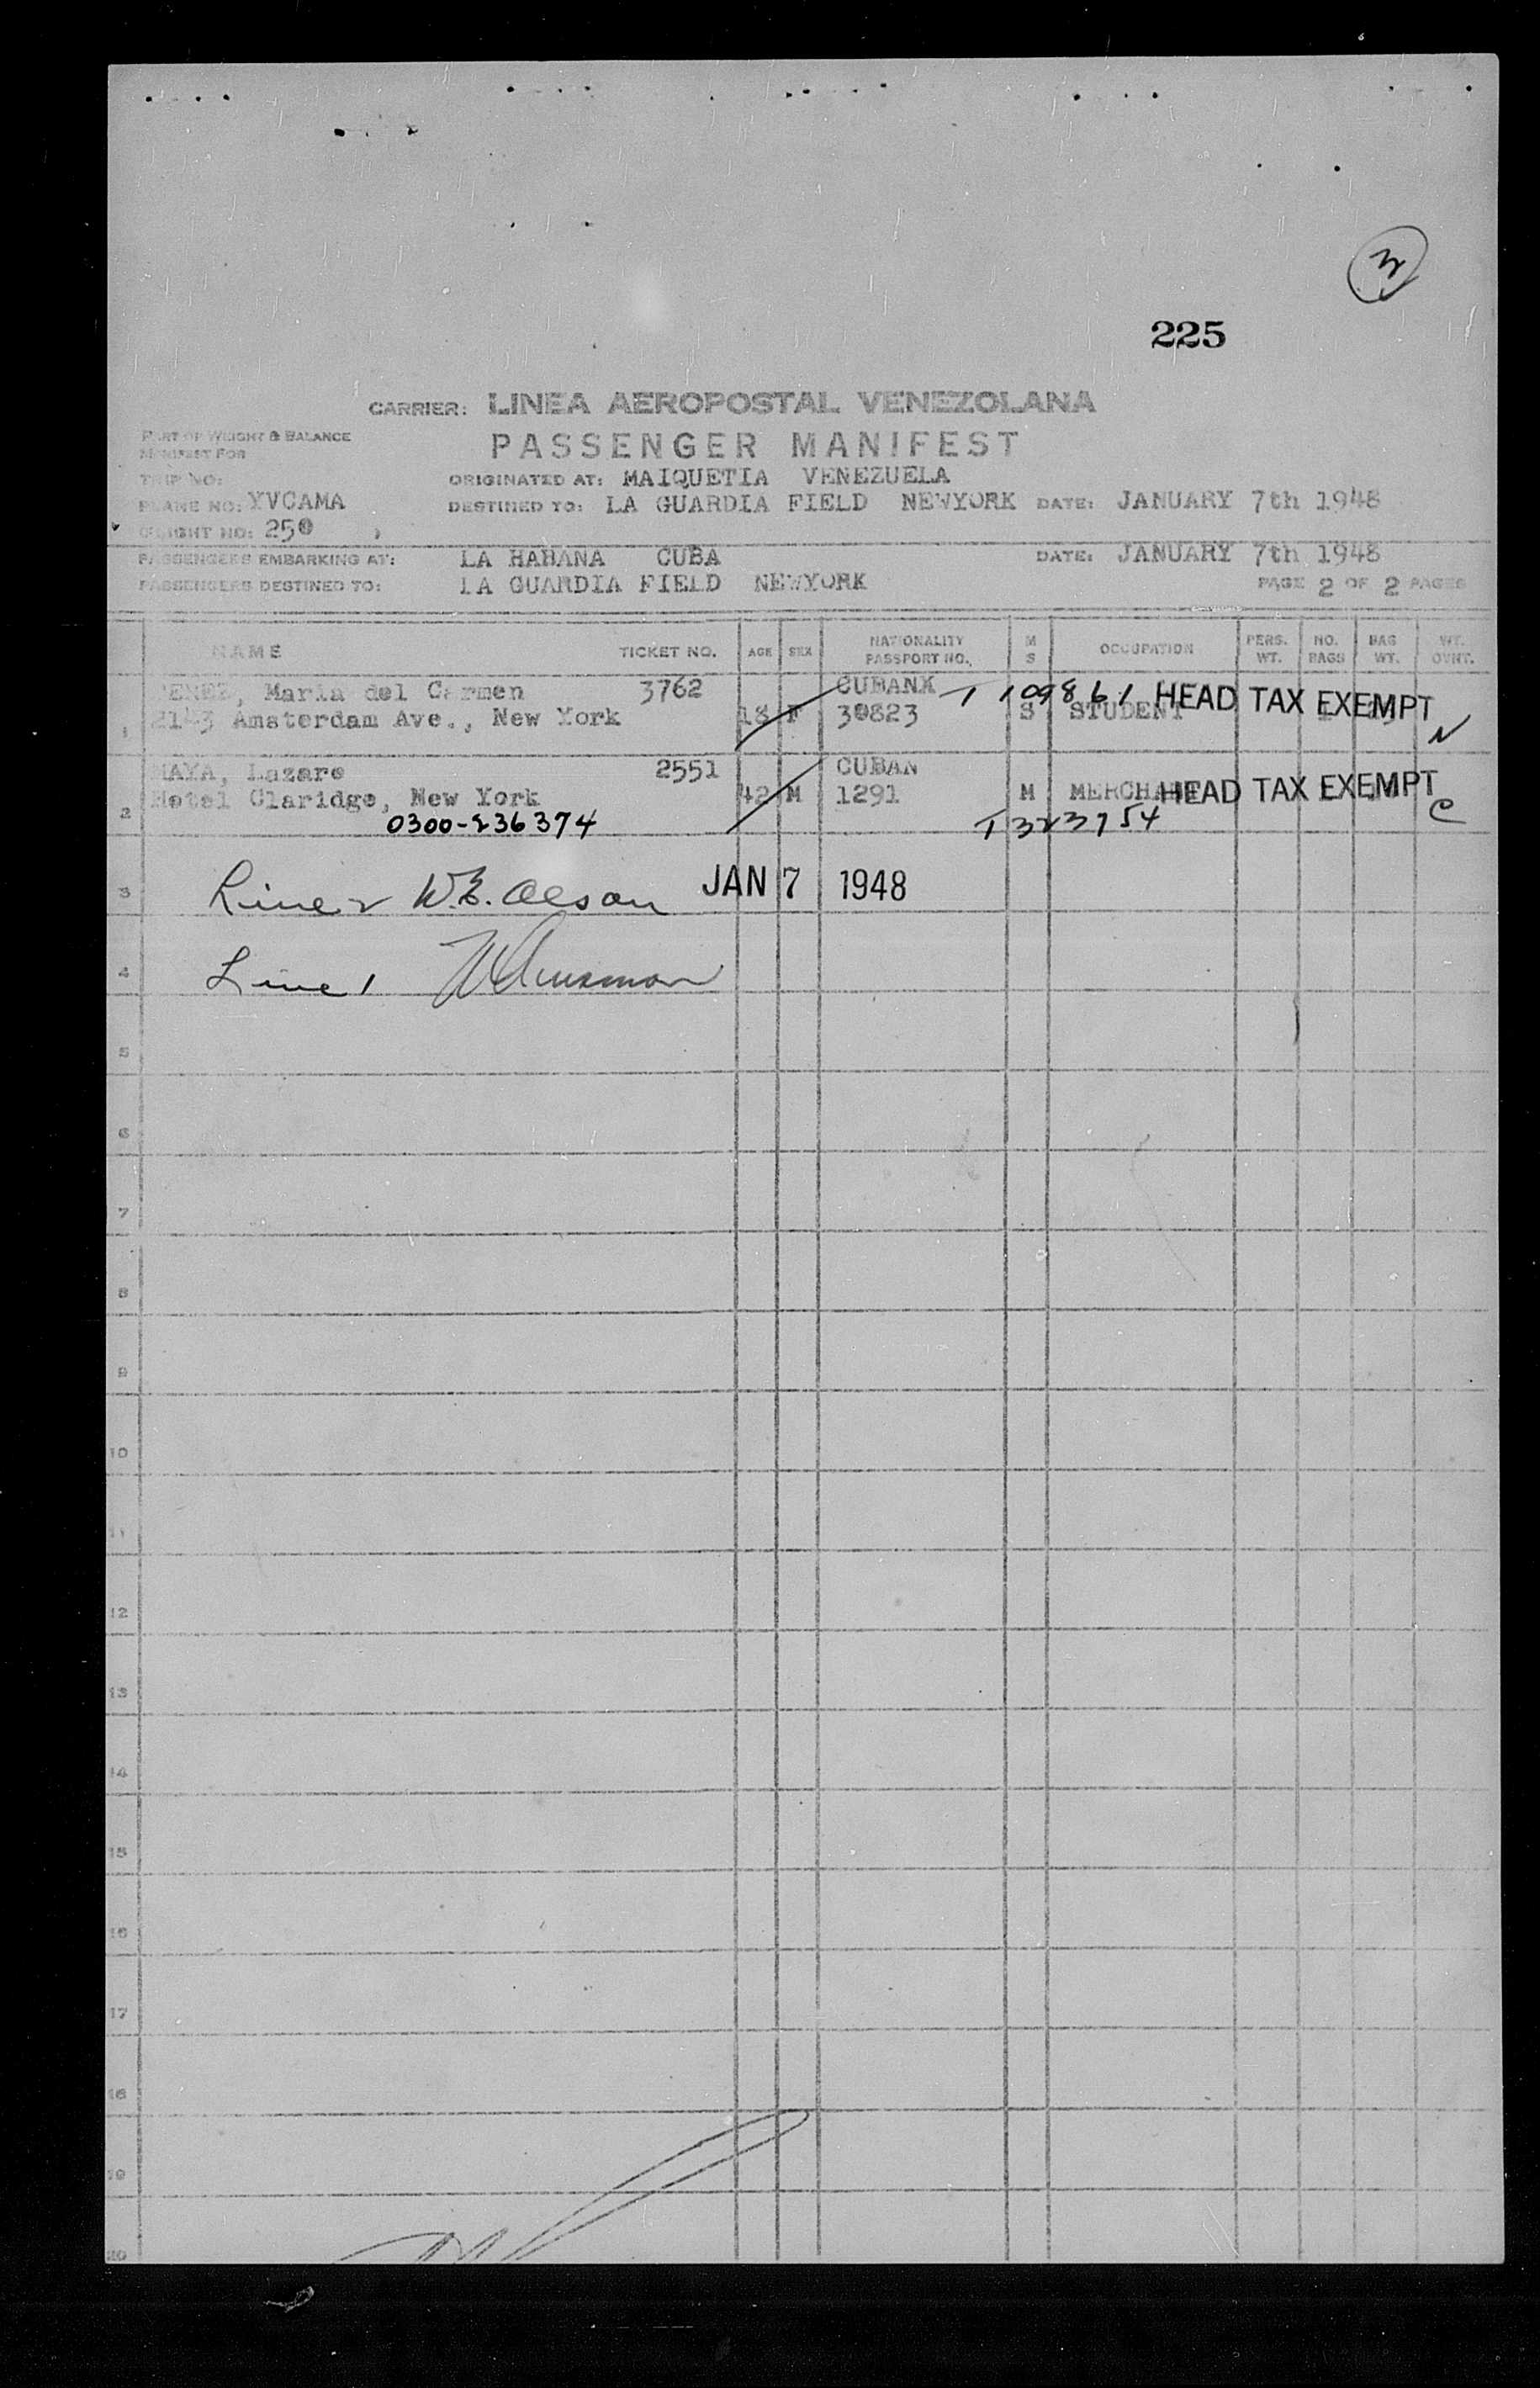 3
225
CARRIER: LINEA AEROPOSTAL VENEZOLANA
PART OF WEIGHT & BALANCE
MANIFEST FOR
PASSENGER MANIFEST
TRIP NO:
ORIGINATED AT: MAIQUETIA VENEZUELA
PLANE NO: YVCAMA
DESTINED TO: LA GUARDIA FIELD NEWYORK DATE: JANUARY 7th 1948
FLIGHT NO: 250
PASSENGERS EMBARKING AT: LA HABANA CUBA DATE: JANUARY 7th 1948
PASSENGERS DESTINED TO: LA GUARDIA FIELD NEWYORK PAGE 2 OF 2 PAGES
NAME TICKET NO. AGE SEX NATIONALITY PASSPORT NO. M S OCCUPATION PERS. WT. NO. BAGS BAG WT. WT. OVHT.
Maria del Carmen 3762 CUBANX T 109861 HEAD TAX EXEMPT
1 2143 Amsterdam Ave., New York 18 F 30823 S STUDENT N
MAYA, Lazaro 2551 CUBAN
Hotel Claridge, New York 42 M 1291 M MERCHANT HEAD TAX EXEMPT C
2 0300-236374 T 323754
3 Line 2 W.E. Olson JAN 7 1948
4 Line 1
5
6
7
8
9
10
11
12
13
14
15
16
17
18
19
20